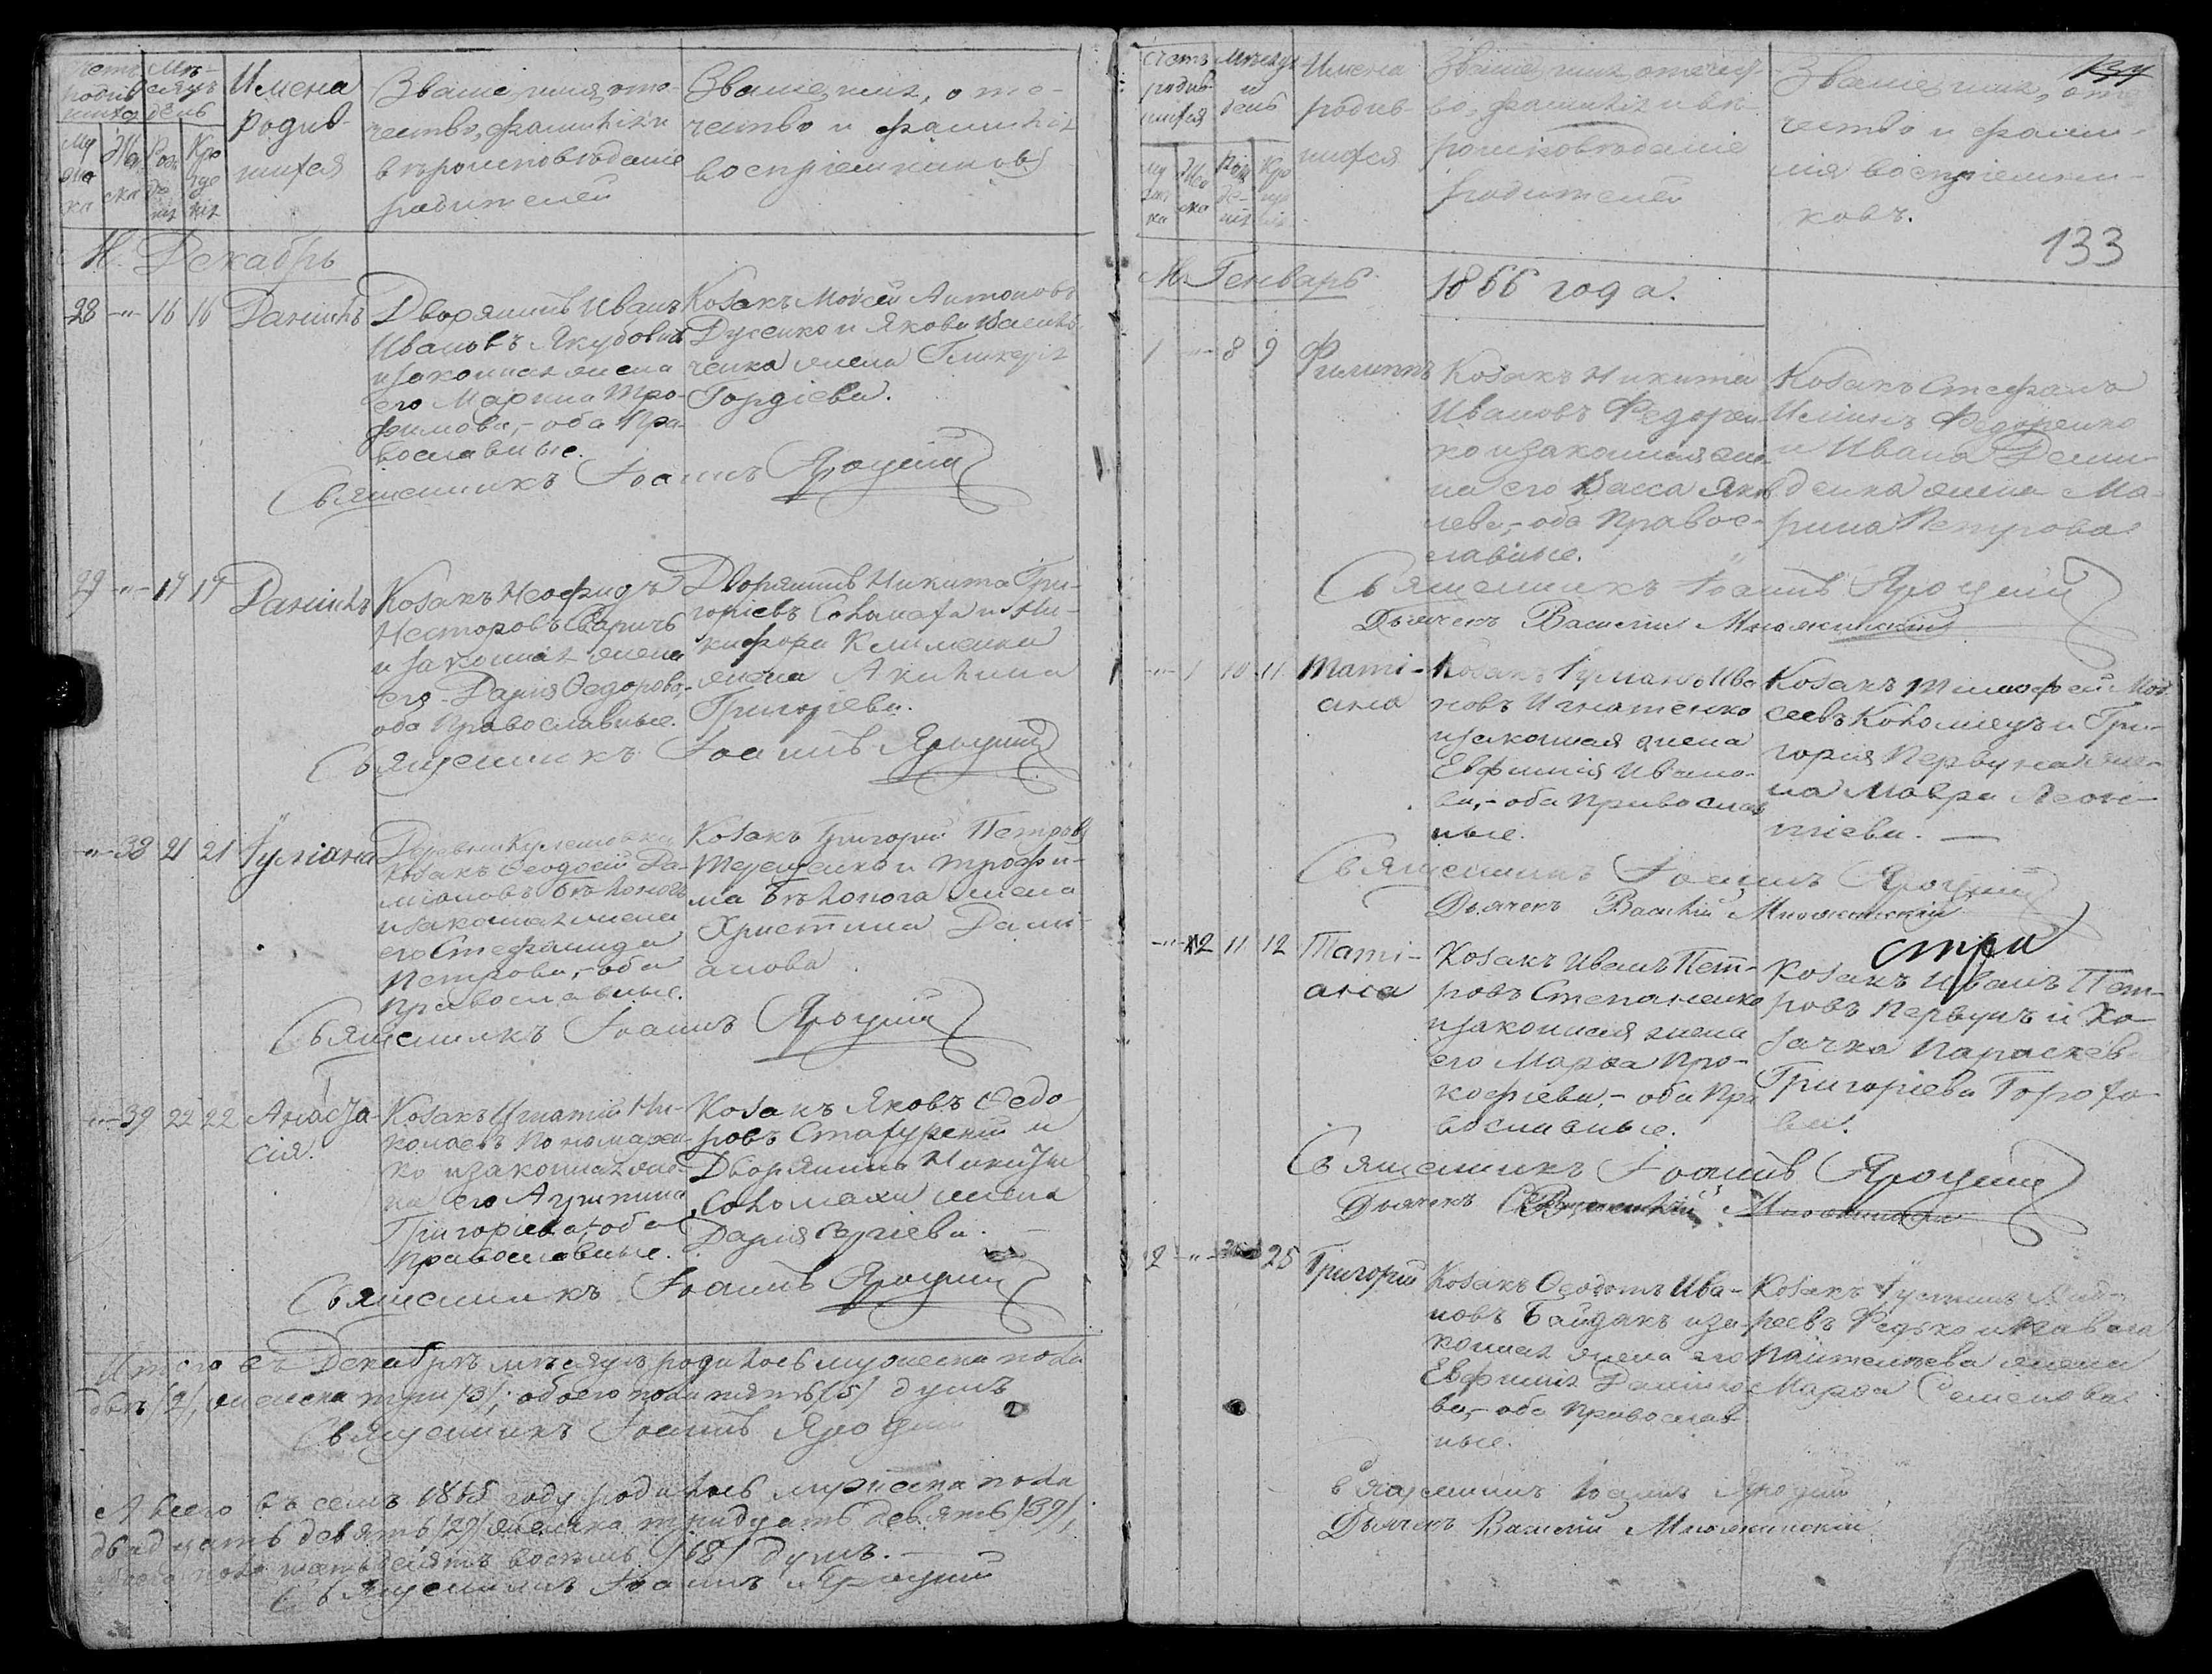 Имена
родив-
шихся
Званіе, имя, оте-
чество, фамилія и
вѣроисповѣданіе
родителей
Званіе, имя, оте-
чество и фамилія
воспріемниковъ
М. Декабрь
28 -"- 16 16 Даніилъ
Дворянинъ Иванъ
Ивановъ Якубовичъ
и законная жена
его Марина Тро-
фимова, - оба Пра-
вославные.
Козакъ Моісей Антоновъ
и Якова
жена Гликерія
Гордіева.
Священникъ Іоаннъ Яроцкій
29 -"- 17 17 Даніилъ
Козакъ Неофидъ
Несторовъ
и законная жена
его Дарія Ѳедорова,
оба Православные.
Дворянинъ Никита Гри-
горіевъ Соломаха и Ни-
кифора Клименка
жена Акилина
Григоріева.
Священникъ Іоаннъ Яроцкій
-"- 38 21 21 Іуліана
Деревни
Козакъ Ѳеодосій Да-
міановъ Бѣлоногъ
и законная жена
его Стефанида
Петрова, - оба
Православные.
Козакъ Григорій Петровъ
Терещенко и Трофи-
ма Бѣлонога жена
Христина Дамі-
анова
Священникъ Іоаннъ Яроцкій
-"- 39 22 22 Анаста-
сія.
Козакъ Игнатій Ни-
колаевъ Пономарен-
ко и законная же-
на его Агрипина
Григоріева, оба
Православные.
Козакъ Яковъ Ѳедо-
ровъ и
Дворянина Никиты
Соломахи жена
Дарія
Священникъ Іоаннъ Яроцкій
Итого въ Декабрѣ мѣсяцѣ родилось мужеска пола
два /2/, женска три /3/; обоего пола пять /5/ душъ
Священникъ Іоаннъ Яроцкій
А всего въ семъ 1865 году родилось мужеска пола
двадцать девять /29/ женска тридцать девять /39/,
обоего пола шестьдесятъ восемь /68/ душъ.
Священникъ Іоаннъ Яроцкій
Счетъ
родив-
шихся
Мѣсяцъ
и
день
Имена
родив-
шихся
Званіе, имя, отечест-
во, фамилія и вѣ-
роисповѣданіе
родителей
Званіе, имя, оте-
чество и фами-
лія воспріемни-
ковъ.
133
М. Генварь
1866 года.
1 -"- 8 9 Филиппъ
Козакъ Никита
Ивановъ Федорен-
ко и законная же-
на его Васса Яков-
лева, - оба Правос-
лавные.
Козакъ Стефанъ
Ильинъ Федоренко
и Ивана Деми-
денка жена Ма-
рина Петрова
Священникъ Іоаннъ Яроцкій
Дьячекъ Василій Множинскій
-"- 1 10 11 Таті-
ана
Козакъ Іуліанъ Ива-
новъ Игнатенко
и законная жена
Евфимія Ивано-
ва, - оба Православ-
ные.
Козакъ Тимофей Мой-
сеевъ Коломіецъ и Гри-
горія Первуна же-
на Мавра Леон-
тіева.
Священникъ Іоаннъ Яроцкій
Дьячекъ Василій Множинскій
-"- 2 11 12 Таті-
ана
Козакъ Иванъ Пет-
ровъ Степаненко
и законная жена
его Марѳа Про-
кофіева, - оба Пра-
вославные.
Козакъ Иванъ Пет-
ровъ Первунъ и Ко-
зачка Параскева
Григоріева
Священникъ Іоаннъ Яроцкій
Дьячекъ Множинскій
2 -"- 25 Григорій
Козакъ Ѳеодотъ Ива-
новъ Байдакъ и за-
конная жена его
Евфимія Данило-
ва, - оба Православ-
ные.
Козакъ Іустинъ
Федько и
жена
Марѳа Семенова
Священникъ Іоаннъ Яроцкій
Дьячекъ Василій Множинскій